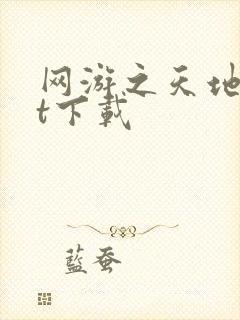 网游之天地
t下载
蓝蚕